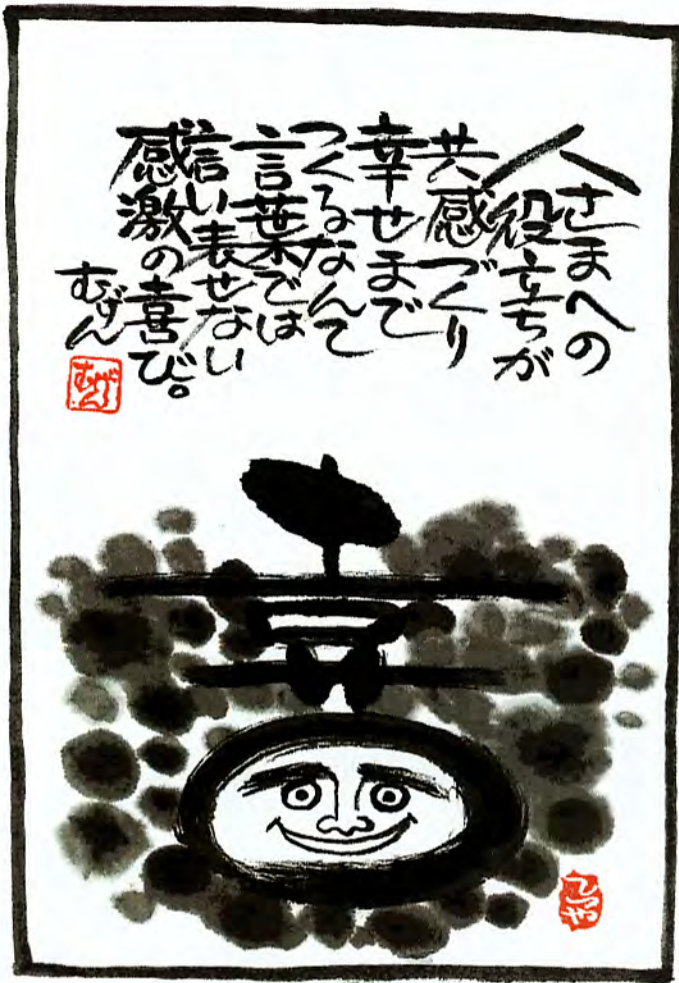 人さまへの
役立ちが
共感づくり
幸せまで
つくるなんて
言葉では
言い表せない
感激の喜び。
むげん
むげん
喜
てつや